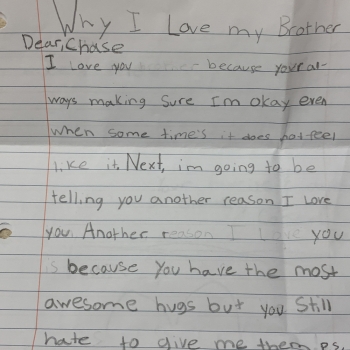 Why I Love my Brother
Dear, Chase
I Love you because your al-
ways making sure I'm okay even
when some time's it does not feel
like it. Next, im going to be
telling you another reason I Love
you. Another reason I Love you
is because you have the most
awesome hugs but you still
hate to give me them ps.